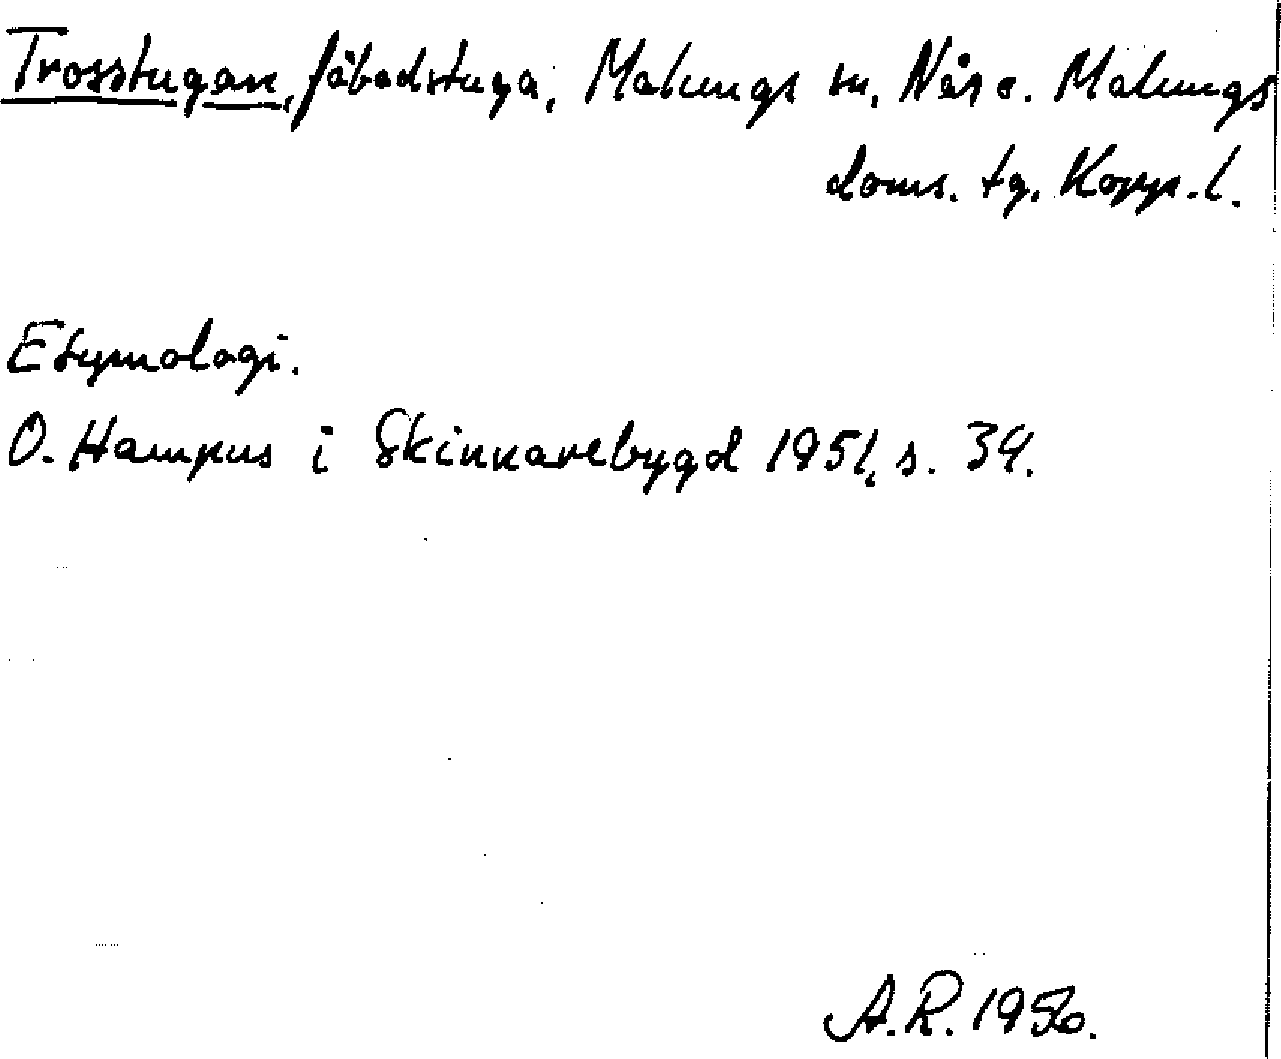 Trosstugan, fäbodstuga, Malungs sn, Nås o. Malungs
doms. tg. Kopp. l.
Etymologi.
O. Hampus i Skinnarebygd 1951, s. 34.
A.R. 1956.